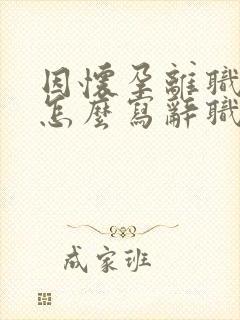 因懷孕離職
怎麼寫辭職
成家班